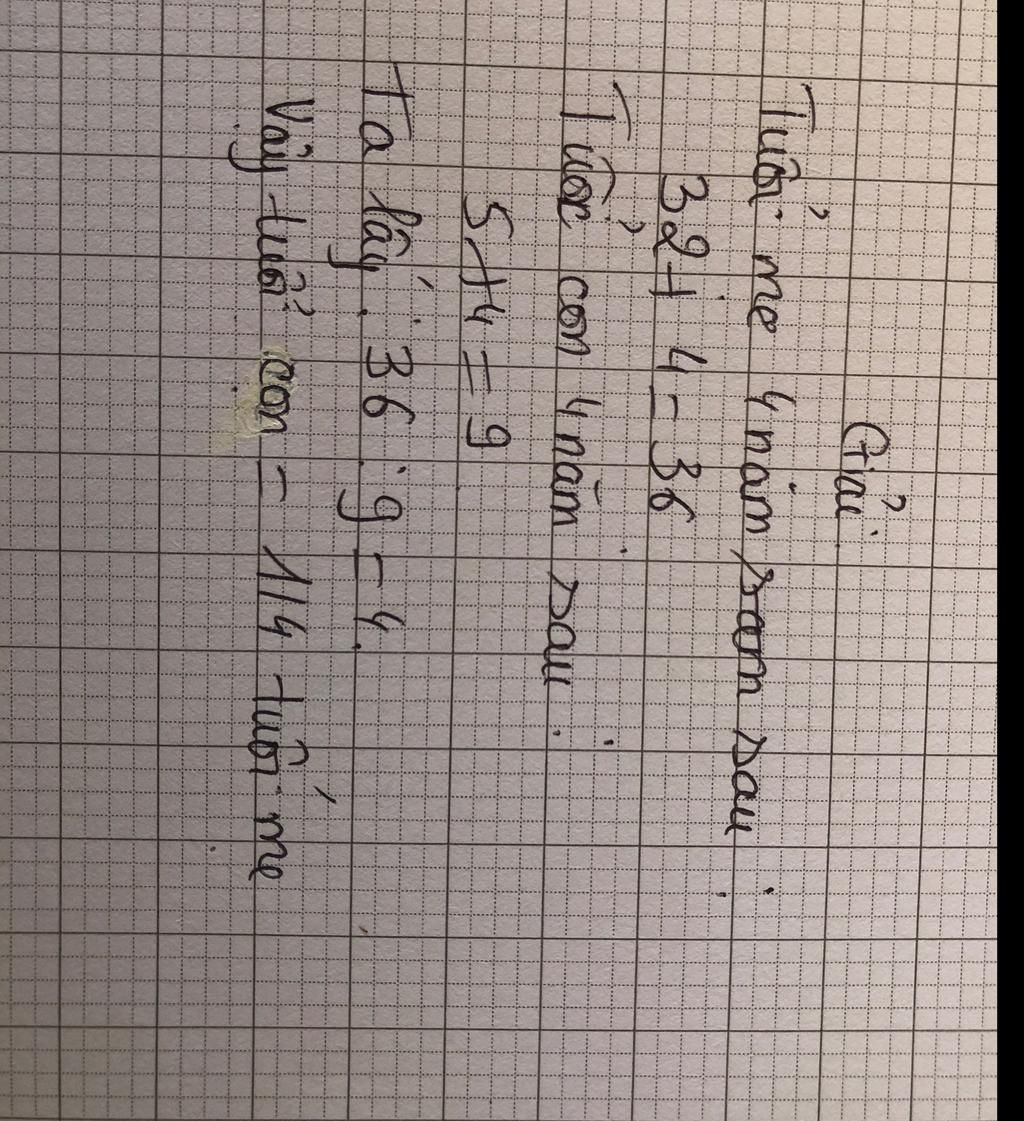 Giải
Tuổi mẹ 4 năm sam sau :
32 + 4 = 36
Tuổi con 4 năm sau :
5 + 4 = 9
Ta lấy : 36 : 9 = 4
Vậy tuổi con = 1/4 tuổi mẹ